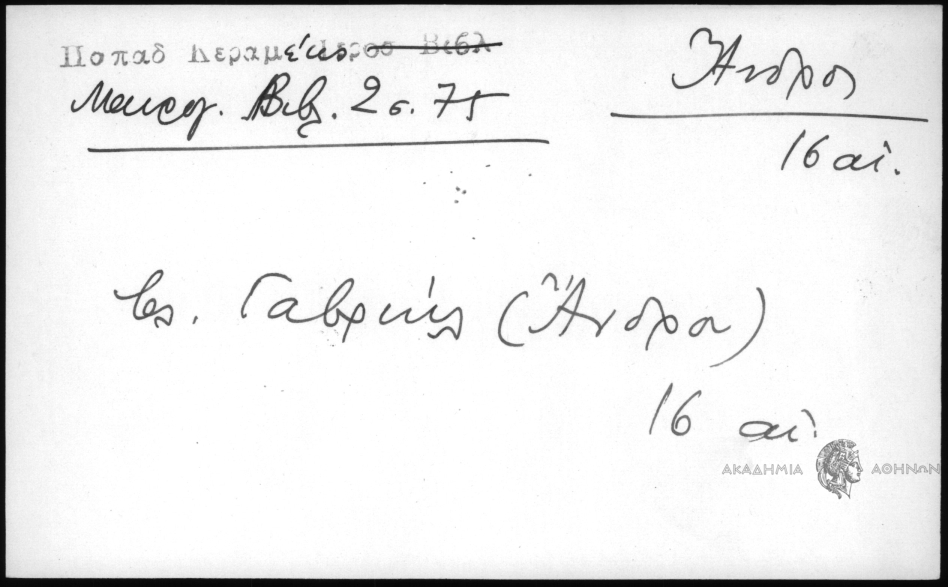 Παπαδ Κεραμέως Ιερος Βιβλ
Μαυρογ. Βιβ. 2 σ. 75
Ἄνδρος
16 αἰ.
Γαβριήλ (Ἄνδρου)
16 αἰ.
ΑΚΑΔΗΜΙΑ ΑΘΗΝΩΝ